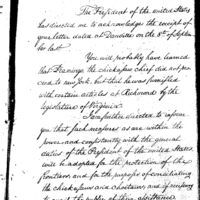 The President of the United States
has directed me to acknowledge the receipt of
your letter dated at Danville on the 8th of Septem
ber last
You will probably have learned
that Piamingo the chickasaw chief did not pro
ceed to new york, but that he was furnished
with certain articles at Richmond by the
legislature of Virginia.
I am further directed to inform
you that such measures as are within the
power and constantly with the general
duties of the President of the United States
will be adopted for the protection of the
frontiers and for the purpose of conciliating
the chickasaws and choctaws and if necessary